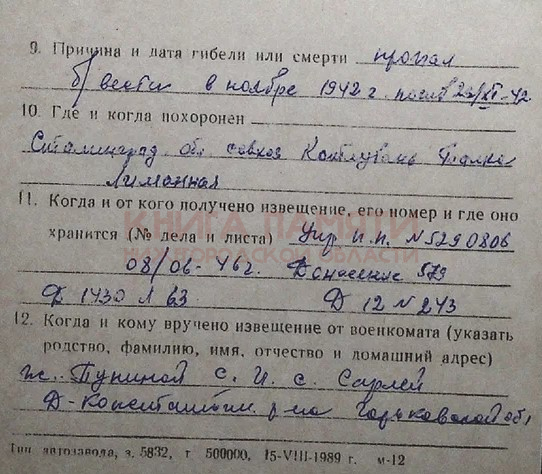 9. Причина и дата гибели или смерти пропал
б/вести в ноябре 1942 г. погиб 26/XI-42
10. Где и когда похоронен
Сталинград. обл совхоз Котлубань балка
Лиманная
11. Когда и от кого получено извещение, его номер и где оно
хранится (№ дела и листа) Упр п.п. № 5290806
08/06-46г. Донесение 579
Д 1430 Л 63 Д 12 № 243
12. Когда и кому вручено извещение от военкомата (указать
родство, фамилию, имя, отчество и домашний адрес)
ж. Пуниной С. И. с. Сарлей
Д-Константин. р-на Горьковской обл
Тип автозавода, з. 5832, т 500000, 15-VIII-1989 г. м-12
КНИГА ПАМЯТИ
НИЖЕГОРОДСКОЙ ОБЛАСТИ